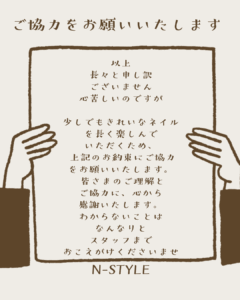 ご協力をお願いいたします
以上
長々と申し訳
ございません
心苦しいのですが
少しでもきれいなネイル
を長く楽しんで
いただくため、
上記のお約束にご協力
をお願いいたします。
皆さまのご理解と
ご協力に、心から
感謝いたします。
わからないことは
なんなりと
スタッフまで
おこえがけくださいませ
N-STYLE